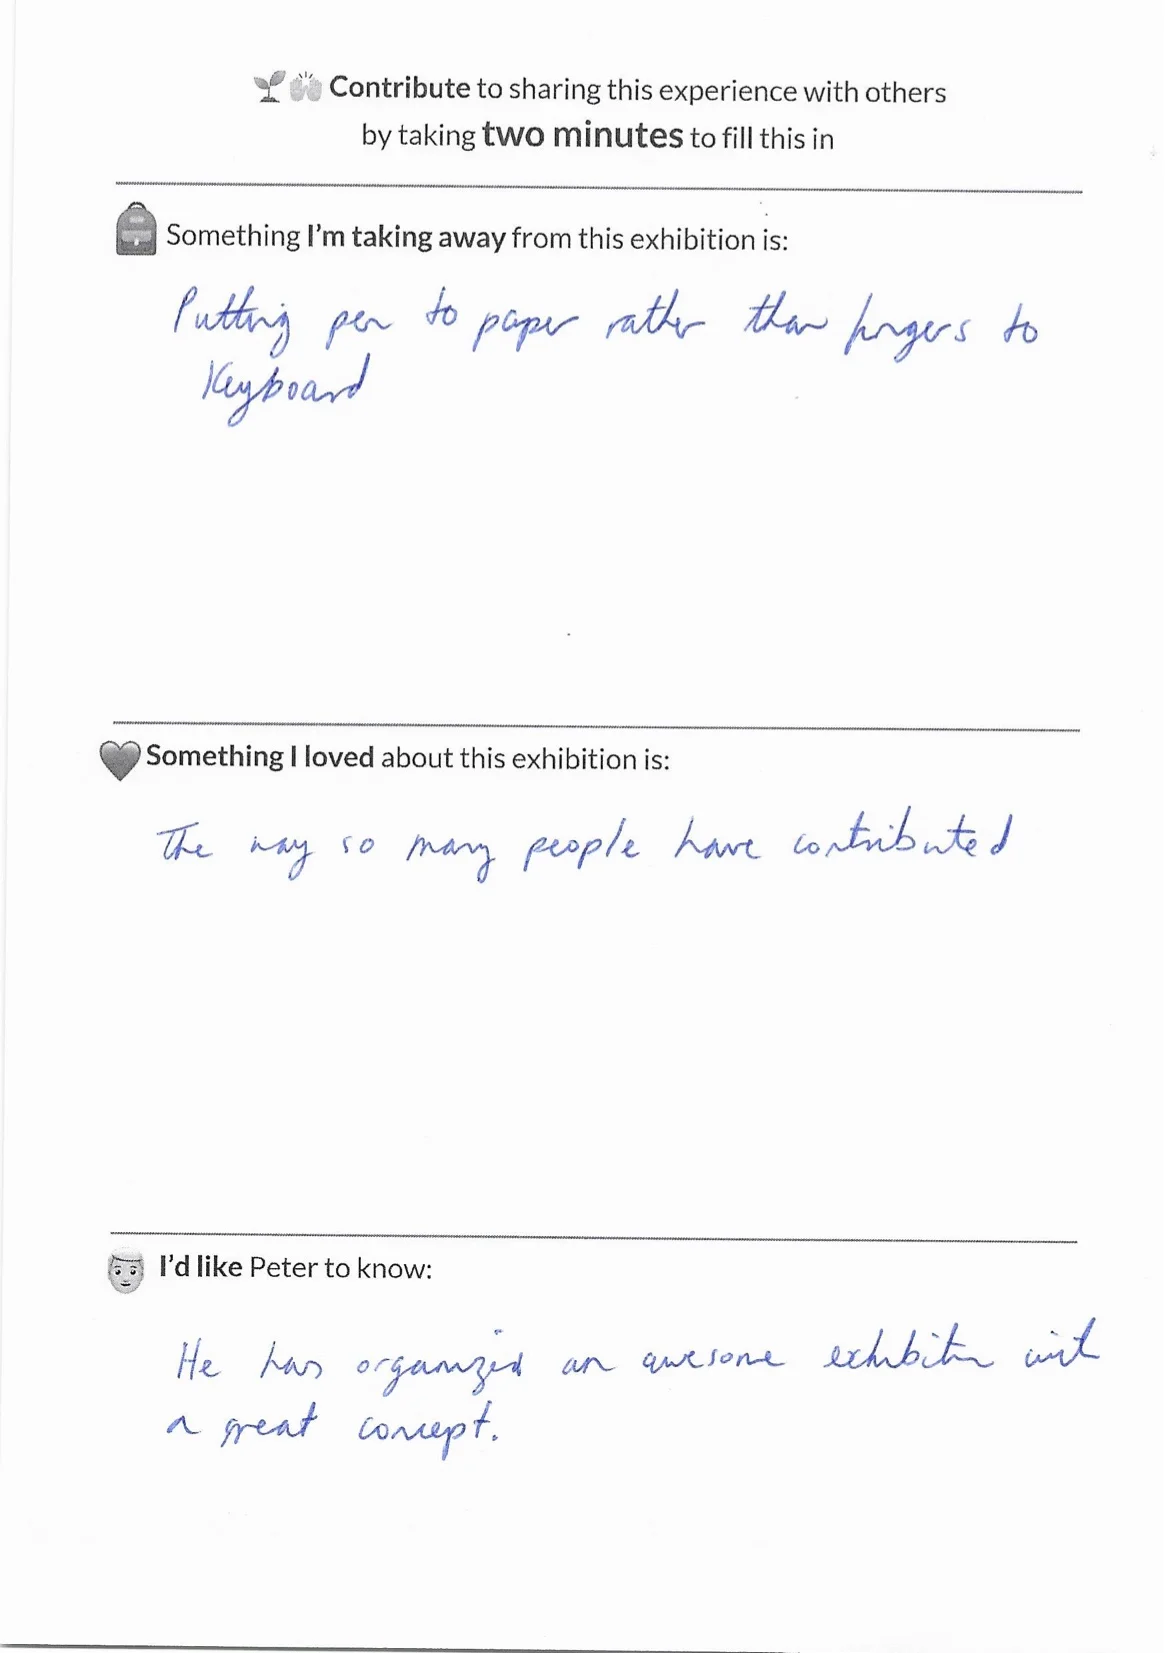 Contribute to sharing this experience with others
by taking two minutes to fill this in
Something I'm taking away from this exhibition is:
Putting pen to paper rather than fingers to
Keyboard
Something I loved about this exhibition is:
The way so many people have contributed
I'd like Peter to know:
He has organized an awesome exhibition with
a great concept.